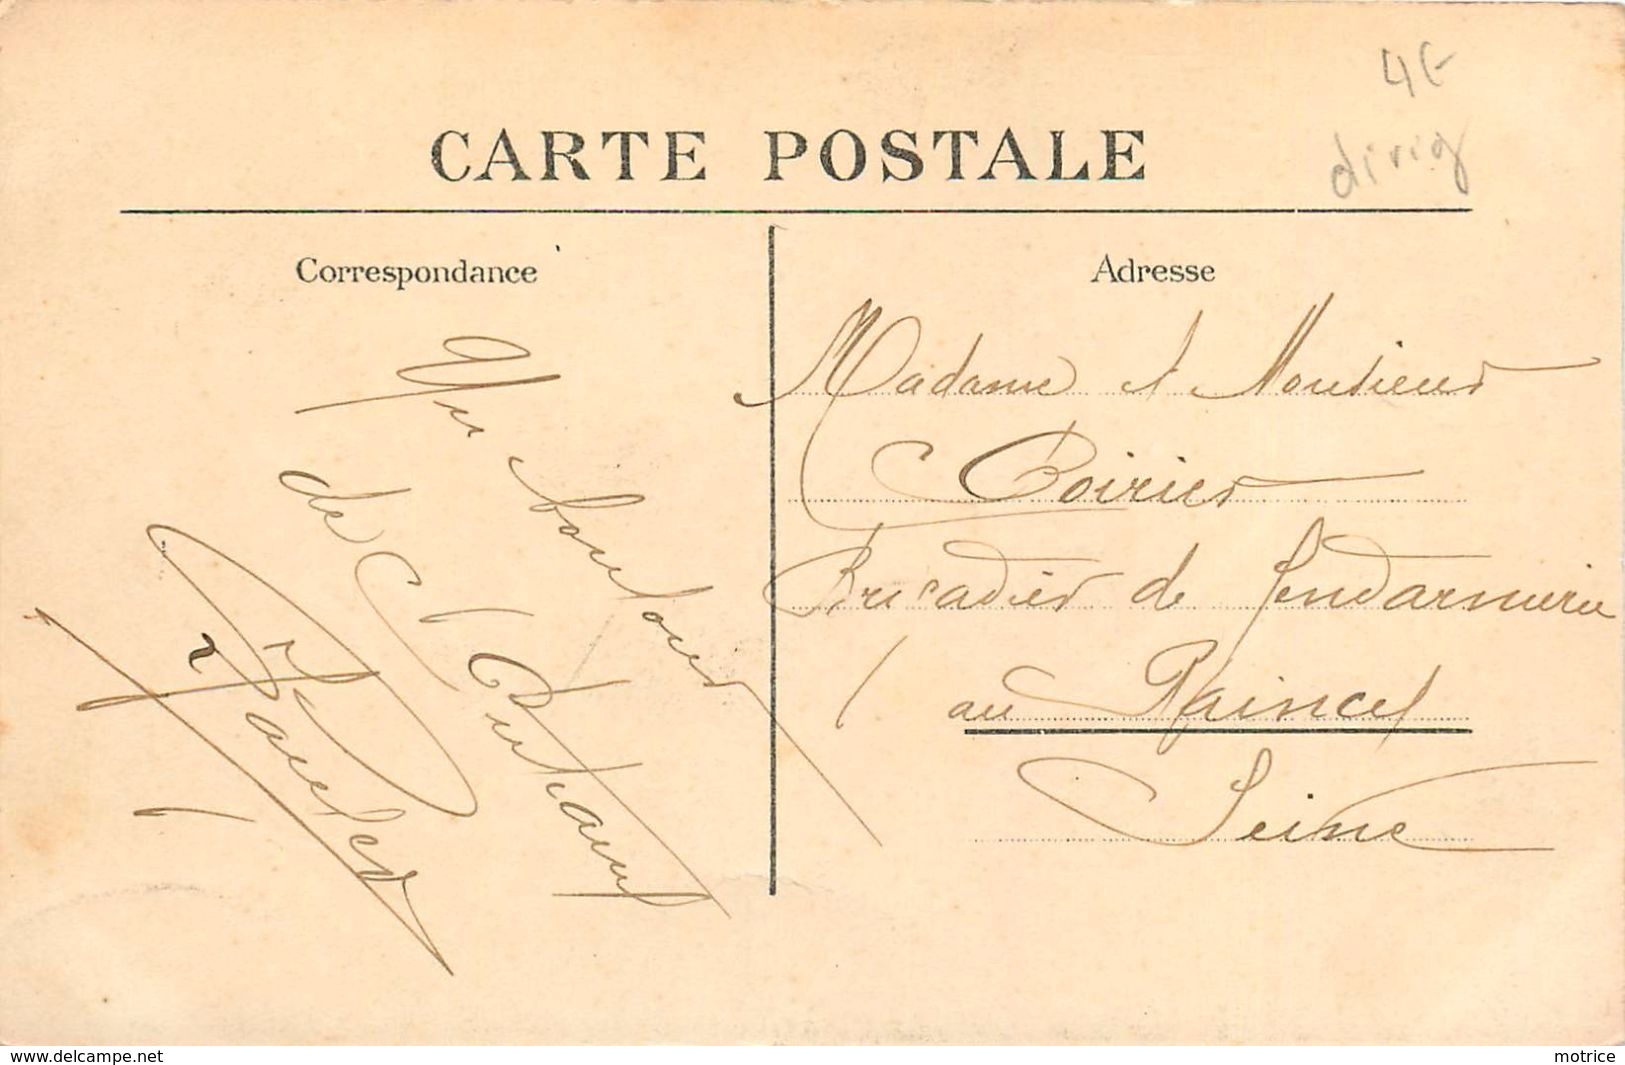 4€
dirig
CARTE POSTALE
Correspondance
Adresse
Un bonjour
de
Madame et Monsieur
Poirier
Brigadier de Gendarmerie
au Raincy
Seine
www.delcampe.net
motrice